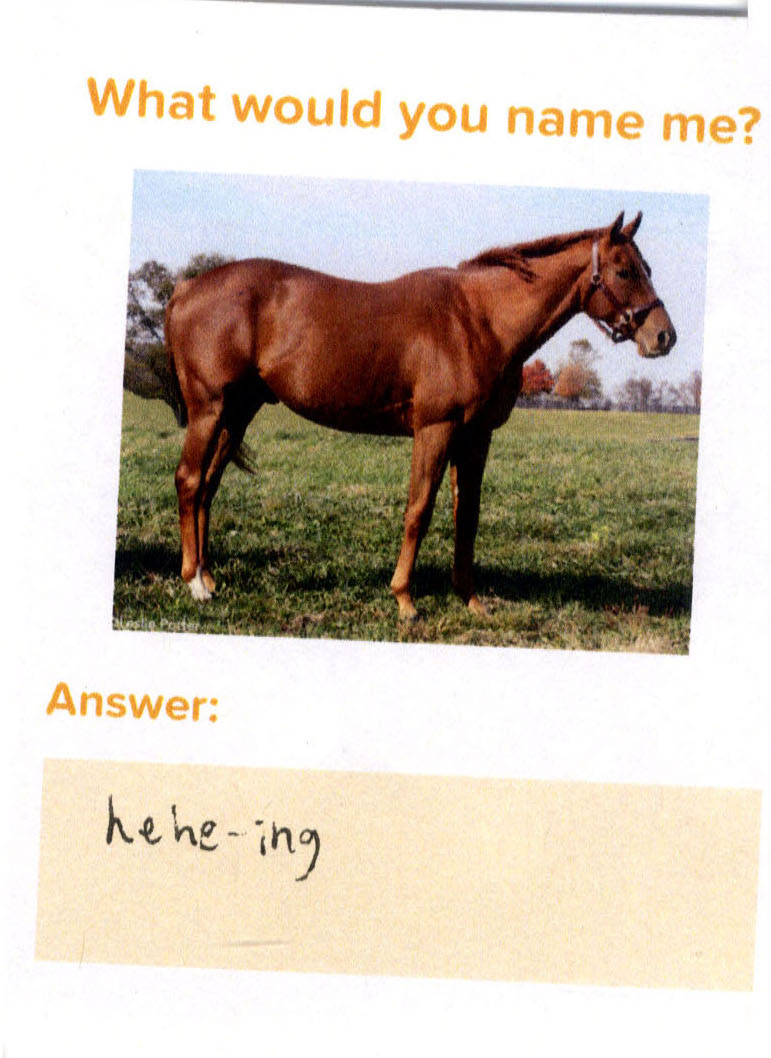 What would you name me?
©Leslie Porter
Answer:
hehe-ing